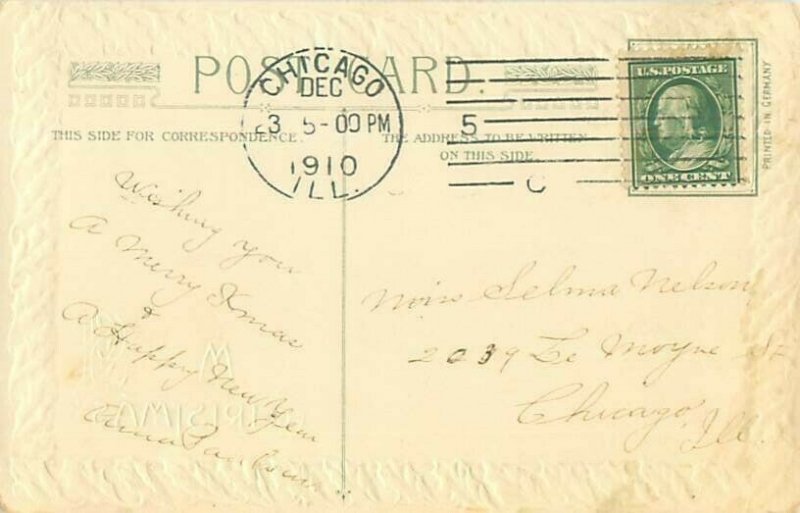 POST CARD.
CHICAGO
DEC
23 5-00 PM
1910
ILL.
5
C
U.S. POSTAGE
ONE CENT
PRINTED IN GERMANY
THIS SIDE FOR CORRESPONDENCE.
THE ADDRESS TO BE WRITTEN
ON THIS SIDE.
Wishing you
A Merry Xmas
&
A Happy New Year
Anna
Miss Selma Nelson
2039 Le Moyne St
Chicago,
Ill.